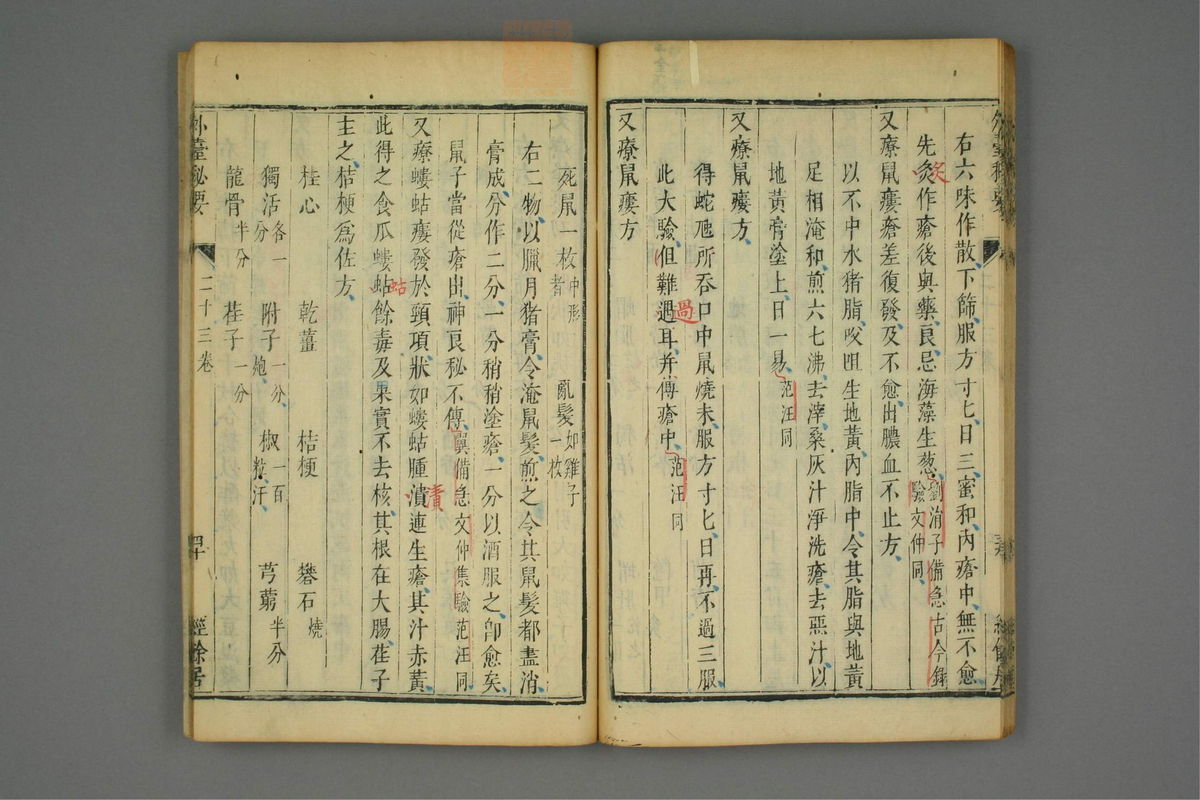 右六味作散下篩服方寸七日三蜜和內瘡中無不愈
先灸作瘡後與藥良忌海藻生葱劉涓子備急古今錄
驗文仲同
又療鼠瘻瘡差復發及不愈出膿血不止方
以不中水猪脂㕮咀生地黃內脂中令其脂與地黃
足相淹和煎六七沸去滓桑灰汁淨洗瘡去惡汁以
地黃膏塗上日一易范汪同
又療鼠瘻方
得蛇虺所吞口中鼠燒末服方寸七日再不過三服
此大驗但難遇耳并傅瘡中范汪同
過
又療鼠瘻方
死鼠一枚中形者 亂髮如雞子一枚
右二物以臘月猪膏令淹鼠髮煎之令其鼠髮都盡消
膏成分作二分一分稍稍塗瘡一分以酒服之卽愈矣
鼠子當從瘡出神良秘不傳冀備急文仲集驗范汪同
又療螻蛄瘻發於頸項狀如螻蛄腫潰連生瘡其汁赤黃
此得之食瓜螻蛄餘毒及果實不去核其根在大腸荏子
蛄
主之桔梗爲佐方
桂心 乾薑 桔梗 礬石燒
獨活各一分 附子一分炮 椒一百粒汗 芎藭半分
龍骨半分 荏子一分
外臺秘要 二十三卷 經餘居